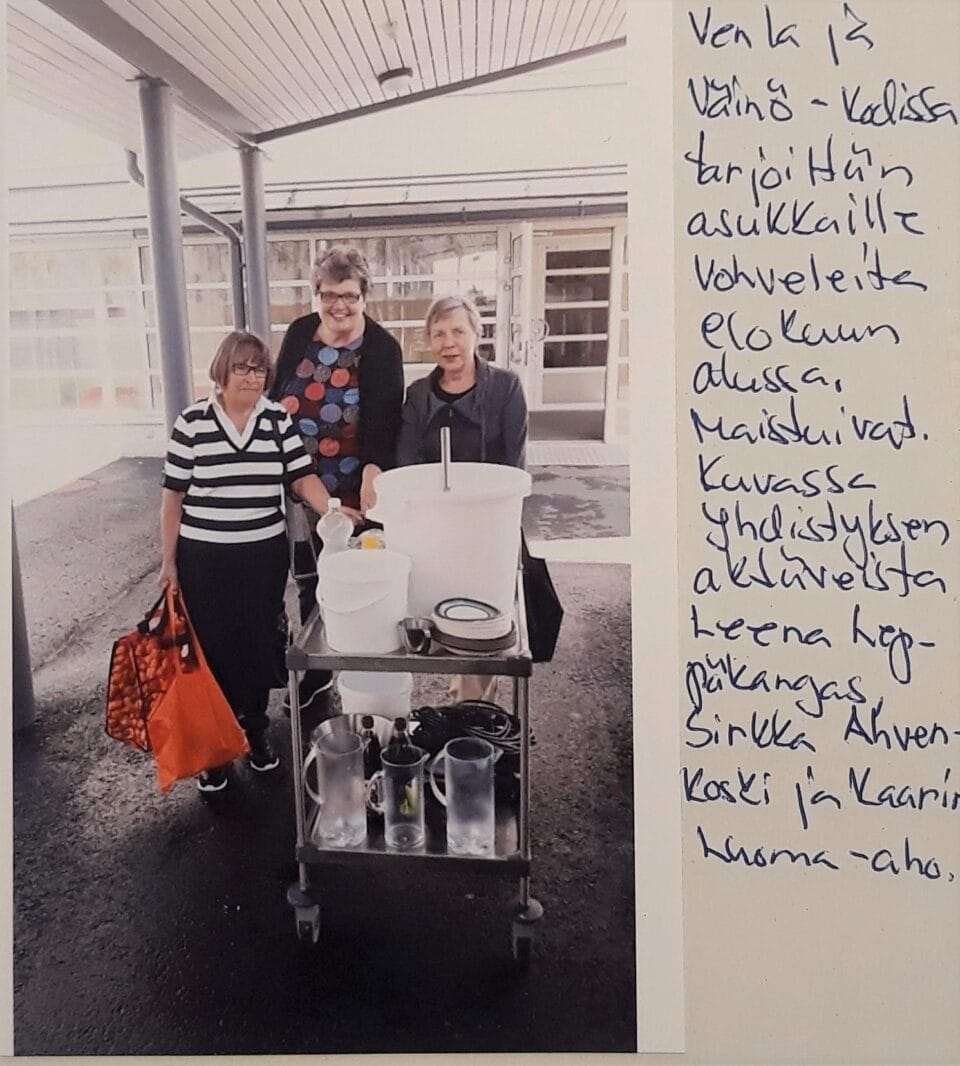 Venla ja
Väinö - kodissa
tarjoittiin
asukkaille
Vohveleita
elokuun
alussa,
Maistuivat.
Kuvassa
Yhdistyksen
aktiiveista
Leena Lep-
päkangas,
Sirkka Ahven-
koski ja Kaarin
Luoma-aho.